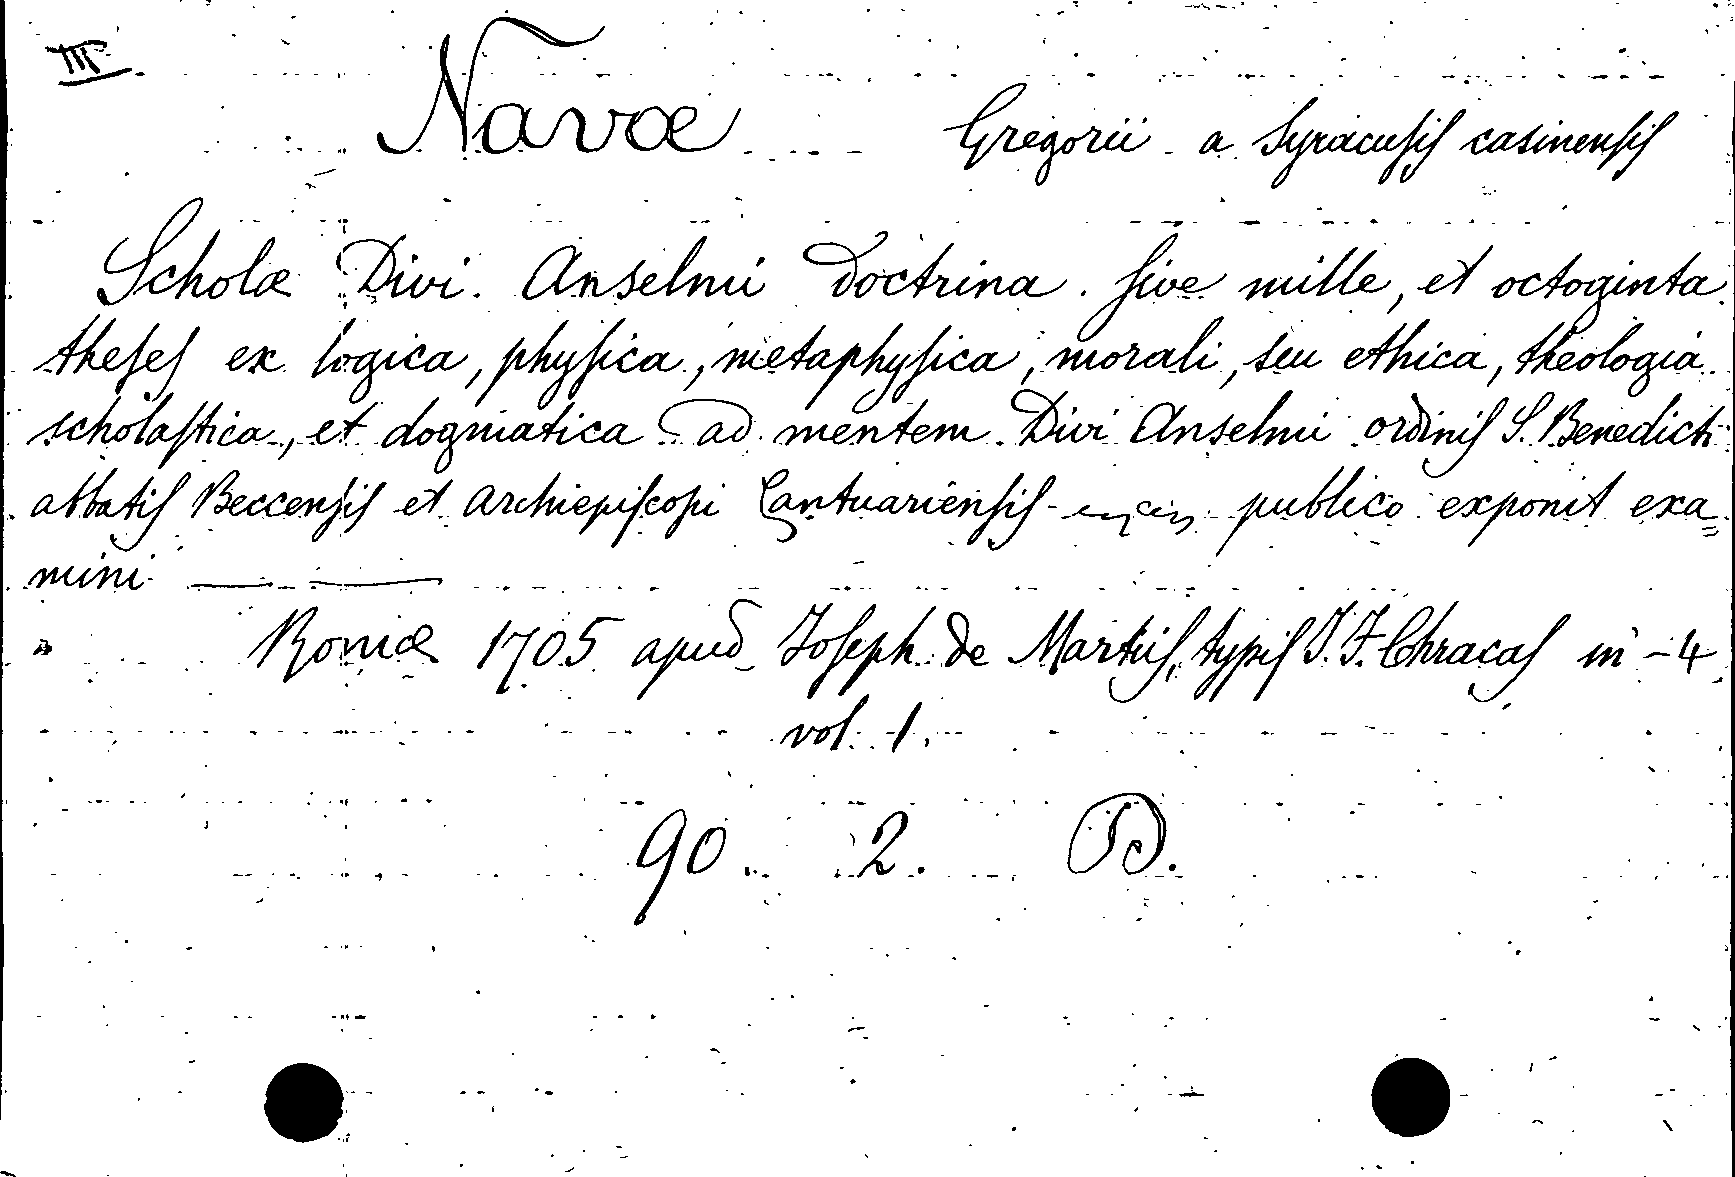 III
Navæ Gregorii a Syracusis casinensis
Scholæ Divi Anselmi Doctrina. sive mille, et octoginta
theses ex logica, physica, metaphysica, morali, seu ethica, theologia
scholastica, et dogmatica ad mentem Divi Anselmi ordinis S. Benedicti
abbatis Beccensis et archiepiscopi Cantuariensis publico exponit exa=
mini
Romæ 1705 apud Joseph de Martiis, typis J. F. Chracas in-4
vol. 1.
90. 2. D.